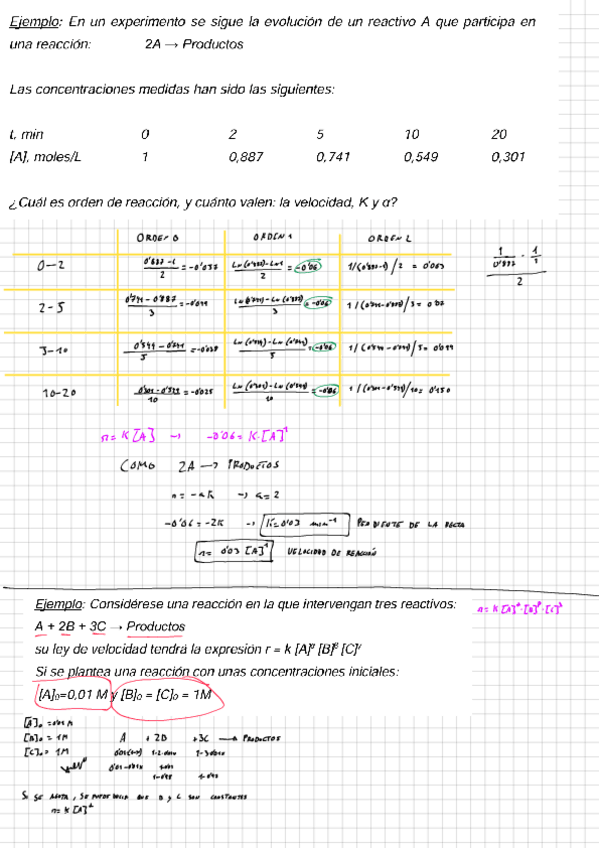 Ejemplo: En un experimento se sigue la evolución de un reactivo A que participa en
una reacción: 2A → Productos
Las concentraciones medidas han sido las siguientes:
t, min 0 2 5 10 20
[A], moles/L 1 0,887 0,741 0,549 0,301
¿Cuál es orden de reacción, y cuánto valen: la velocidad, K y α?
ORDEN 0 ORDEN 1 ORDEN 2
0-2 0'887-1 / 2 = -0'057 Ln(0'887)-Ln1 / 2 = -0'06 1/(0'887-1)/2 = 0'063
1/0'887 - 1/1
2
2-5 0'741-0'887 / 3 = Ln(0'741)-Ln(0'887) / 3 = -0'06 1/(0'741-0'887)/3=
5-10 0'549-0'741 / 5 = -0'038 Ln(0'549)-Ln(0'741) / 5 = -0'06 1/(0'549-0'741)/5=
10-20 0'301-0'549 / 10 = -0'025 Ln(0'301)-Ln(0'549) / 10 = -0'06 1/(0'301-0'549)/10= 0'150
r = K [A] → -0'06 = K·[A]¹
COMO 2A → PRODUCTOS
→ a = 2
-0'06 = -2K → K=0'03 min⁻¹ PENDIENTE DE LA RECTA
r = 0'03 [A]¹ VELOCIDAD DE REACCIÓN
Ejemplo: Considérese una reacción en la que intervengan tres reactivos:
r = K [A]ᵅ·[B]ᵝ·[C]ᵞ
A + 2B + 3C → Productos
su ley de velocidad tendrá la expresión r = k [A]ᵅ [B]ᵝ [C]ᵞ
Si se plantea una reacción con unas concentraciones iniciales:
[A]₀=0,01 M y [B]₀ = [C]₀ = 1M
[A]₀ = 0'01 M
[B]₀ = 1M A + 2B + 3C → PRODUCTOS
[C]₀ = 1M
SI SE AGOTA, SE PUEDE DECIR QUE B y C SON CONSTANTES
r = K [A]ᵅ